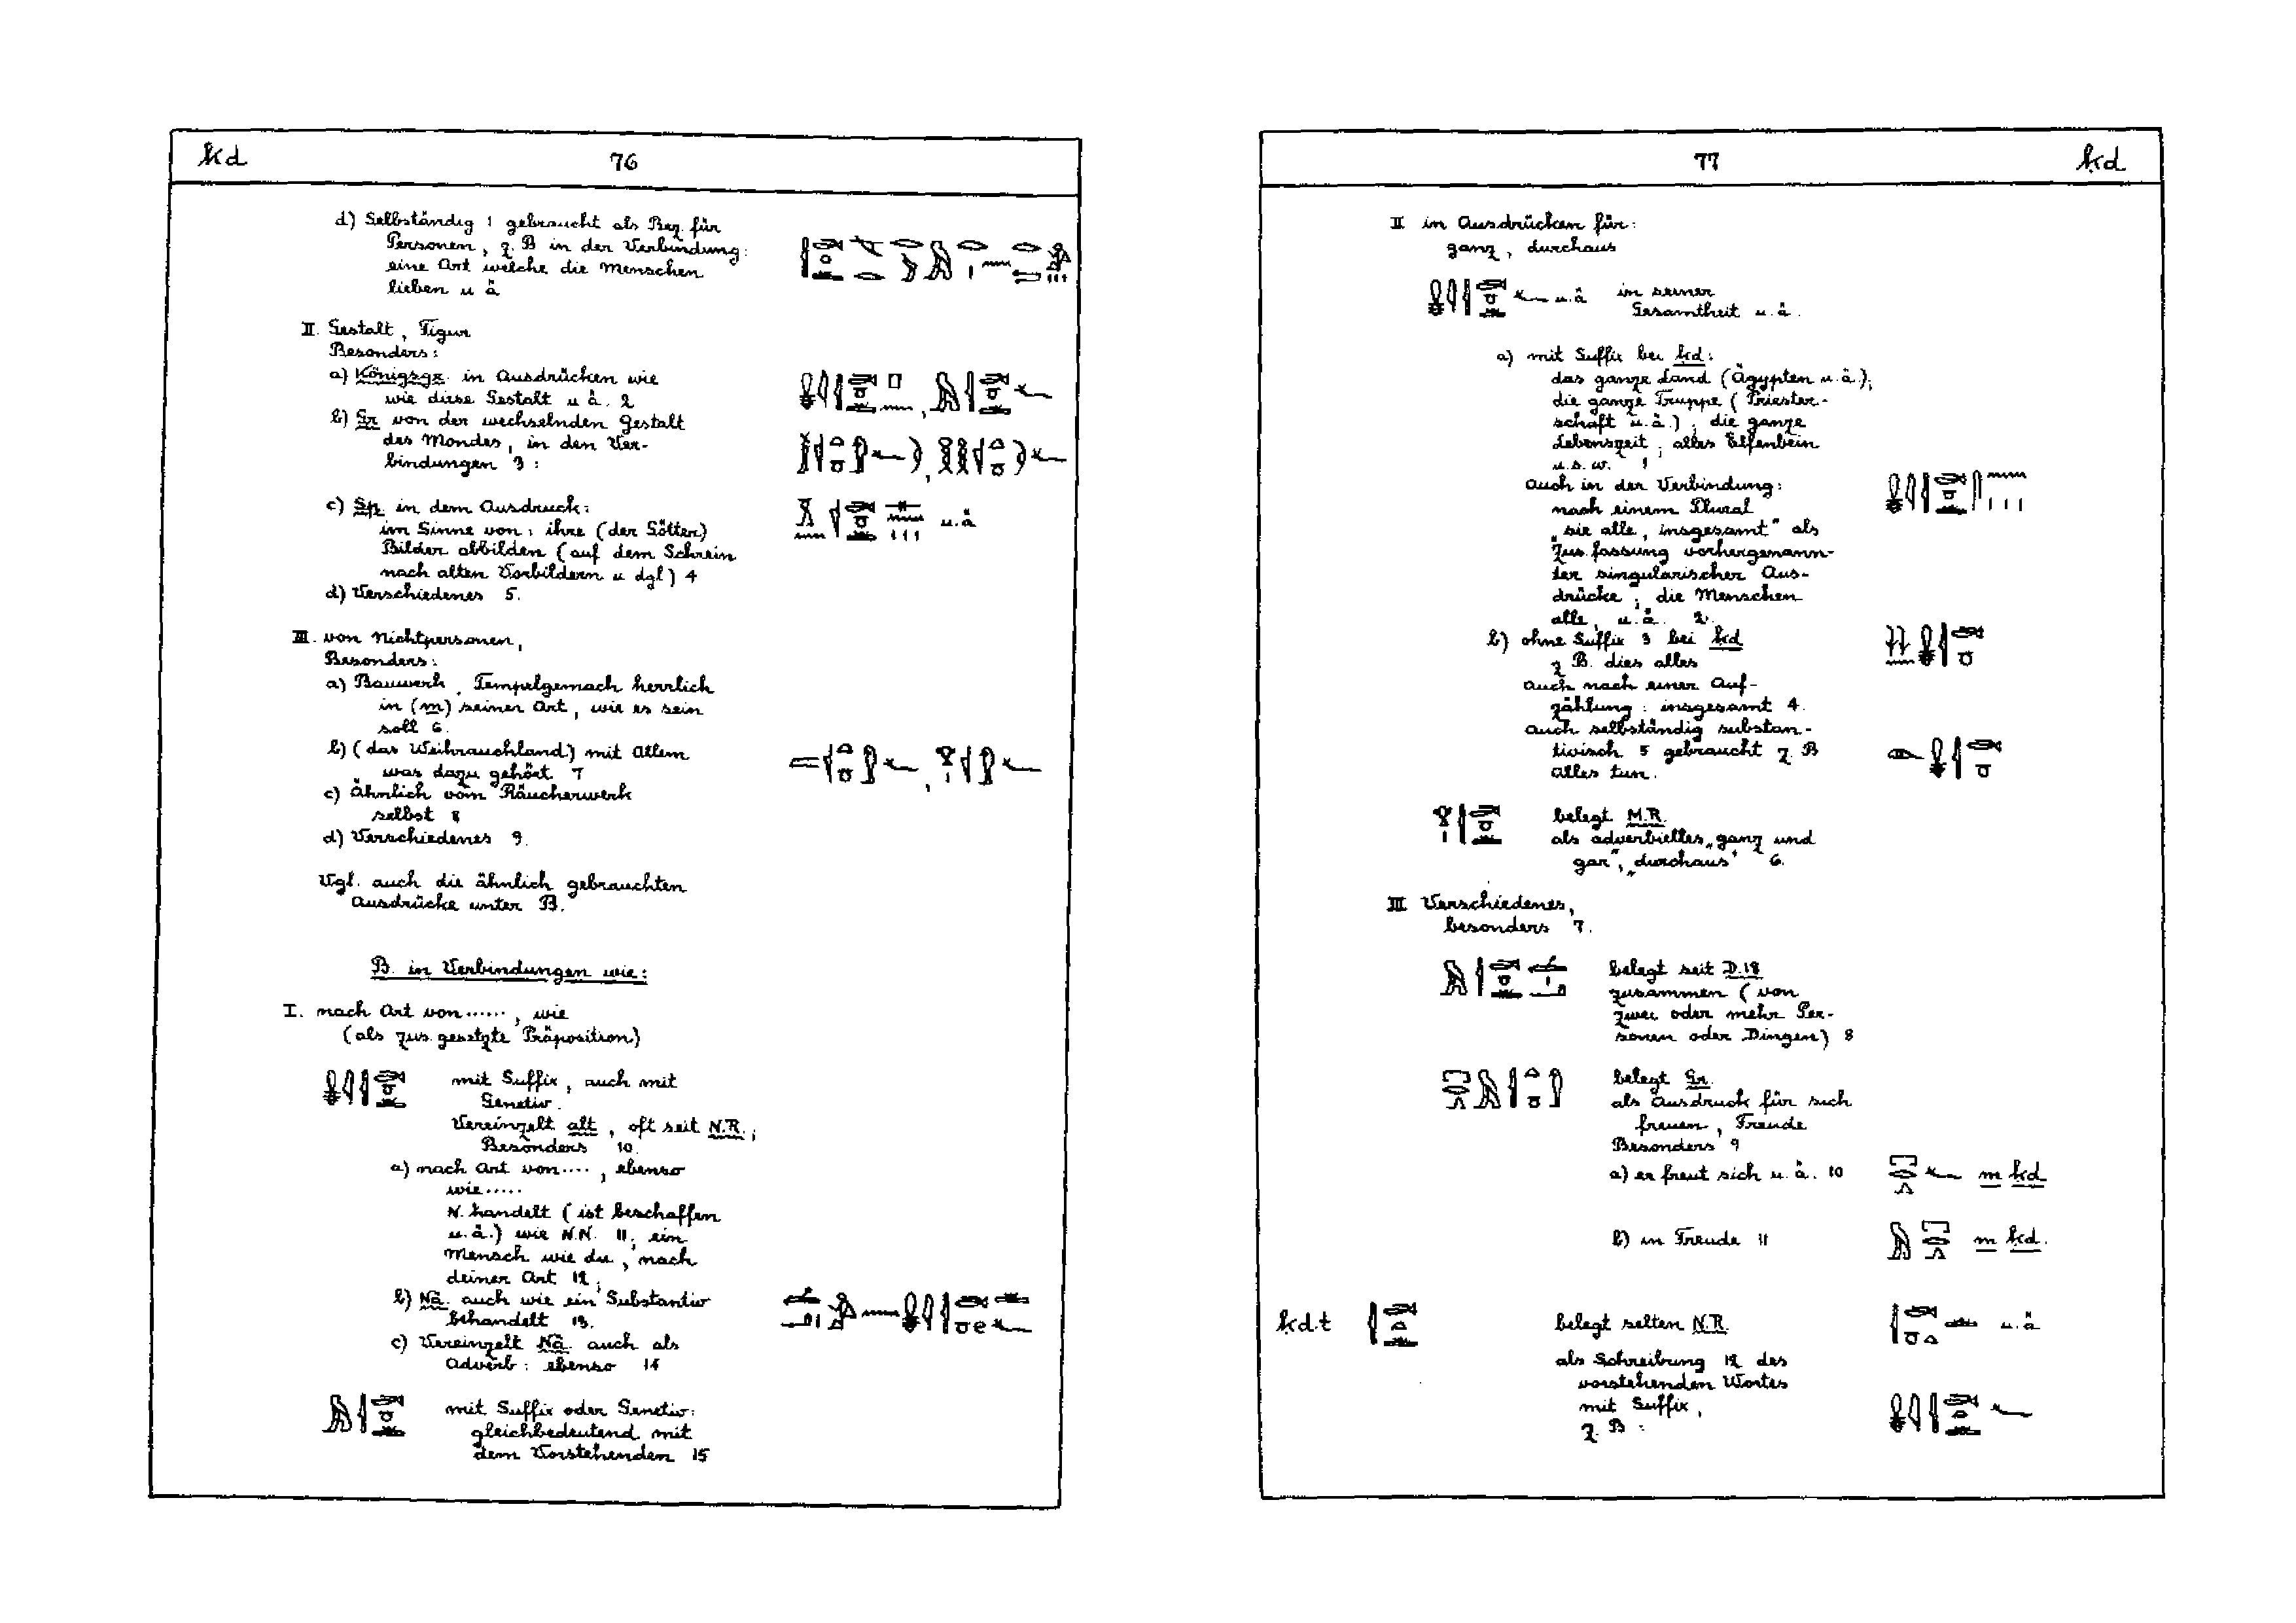 ḳd 76
d) Selbständig 1 gebraucht als Bez. für
Personen, z. B in der Verbindung:
eine Art welche die Menschen
lieben u ä
II. Gestalt, Figur
Besonders:
a) Königsgr. in Ausdrücken wie
wie diese Gestalt u ä. 2
b) Gr. von der wechselnden Gestalt
des Mondes, in den Ver-
bindungen 3 :
c) Sp. in dem Ausdruck:
im Sinne von: ihre (der Götter)
Bilder abbilden (auf dem Schrein
nach alten Vorbildern u dgl) 4
u. ä
d) Verschiedenes 5.
III. von Nichtpersonen,
Besonders:
a) Bauwerk, Tempelgemach herrlich
in (m) seiner Art, wie es sein
soll 6.
b) (das Weihrauchland) mit Allem
was dazu gehört. 7
c) Ähnlich vom Räucherwerk
selbst 8
d) Verschiedenes 9.
Vgl. auch die ähnlich gebrauchten
Ausdrücke unter B.
B. in Verbindungen wie:
I. nach Art von ......, wie
(als zus. gesetzte Präposition)
mit Suffix, auch mit
Genetiv.
Vereinzelt alt, oft seit N.R.;
Besonders 10.
a) nach Art von ...., ebenso
wie .....
N. handelt (ist beschaffen
u. ä.) wie N.N. 11; ein
Mensch wie du, nach
deiner Art 12;
b) Nä. auch wie ein Substantiv
behandelt 13.
c) Vereinzelt Nä. auch als
Adverb: ebenso 14
mit Suffix oder Genetiv:
gleichbedeutend mit
dem Vorstehenden 15
77 ḳd
II in Ausdrücken für:
ganz, durchaus
u. ä in seiner
Gesamtheit u. ä.
a) mit Suffix bei ḳd:
das ganze Land (Ägypten u. ä.);
die ganze Truppe (Priester-
schaft u. ä.); die ganze
Lebenszeit; alles Elfenbein
u. s. w. 1
auch in der Verbindung:
nach einem Plural
„sie alle, insgesamt" als
Zus.fassung vorhergenann-
ter singularischer Aus-
drücke; die Menschen
alle, u. ä. 2.
b) ohne Suffix 3 bei ḳd
z. B. dies alles
auch nach einer Auf-
zählung: insgesamt 4.
auch selbständig substan-
tivisch 5 gebraucht z. B
alles tun.
belegt M.R.
als adverbielles „ganz und
gar", „durchaus" 6.
III Verschiedenes,
besonders 7.
belegt seit D.18
zusammen (von
zwei oder mehr Per-
sonen oder Dingen) 8
belegt Gr.
als Ausdruck für sich
freuen, Freude
Besonders 9
a) er freut sich u. ä. 10 m ḳd
b) in Freude 11 m ḳd.
ḳd.t belegt selten N.R. u. ä
als Schreibung 12 des
vorstehenden Wortes
mit Suffix,
z. B :